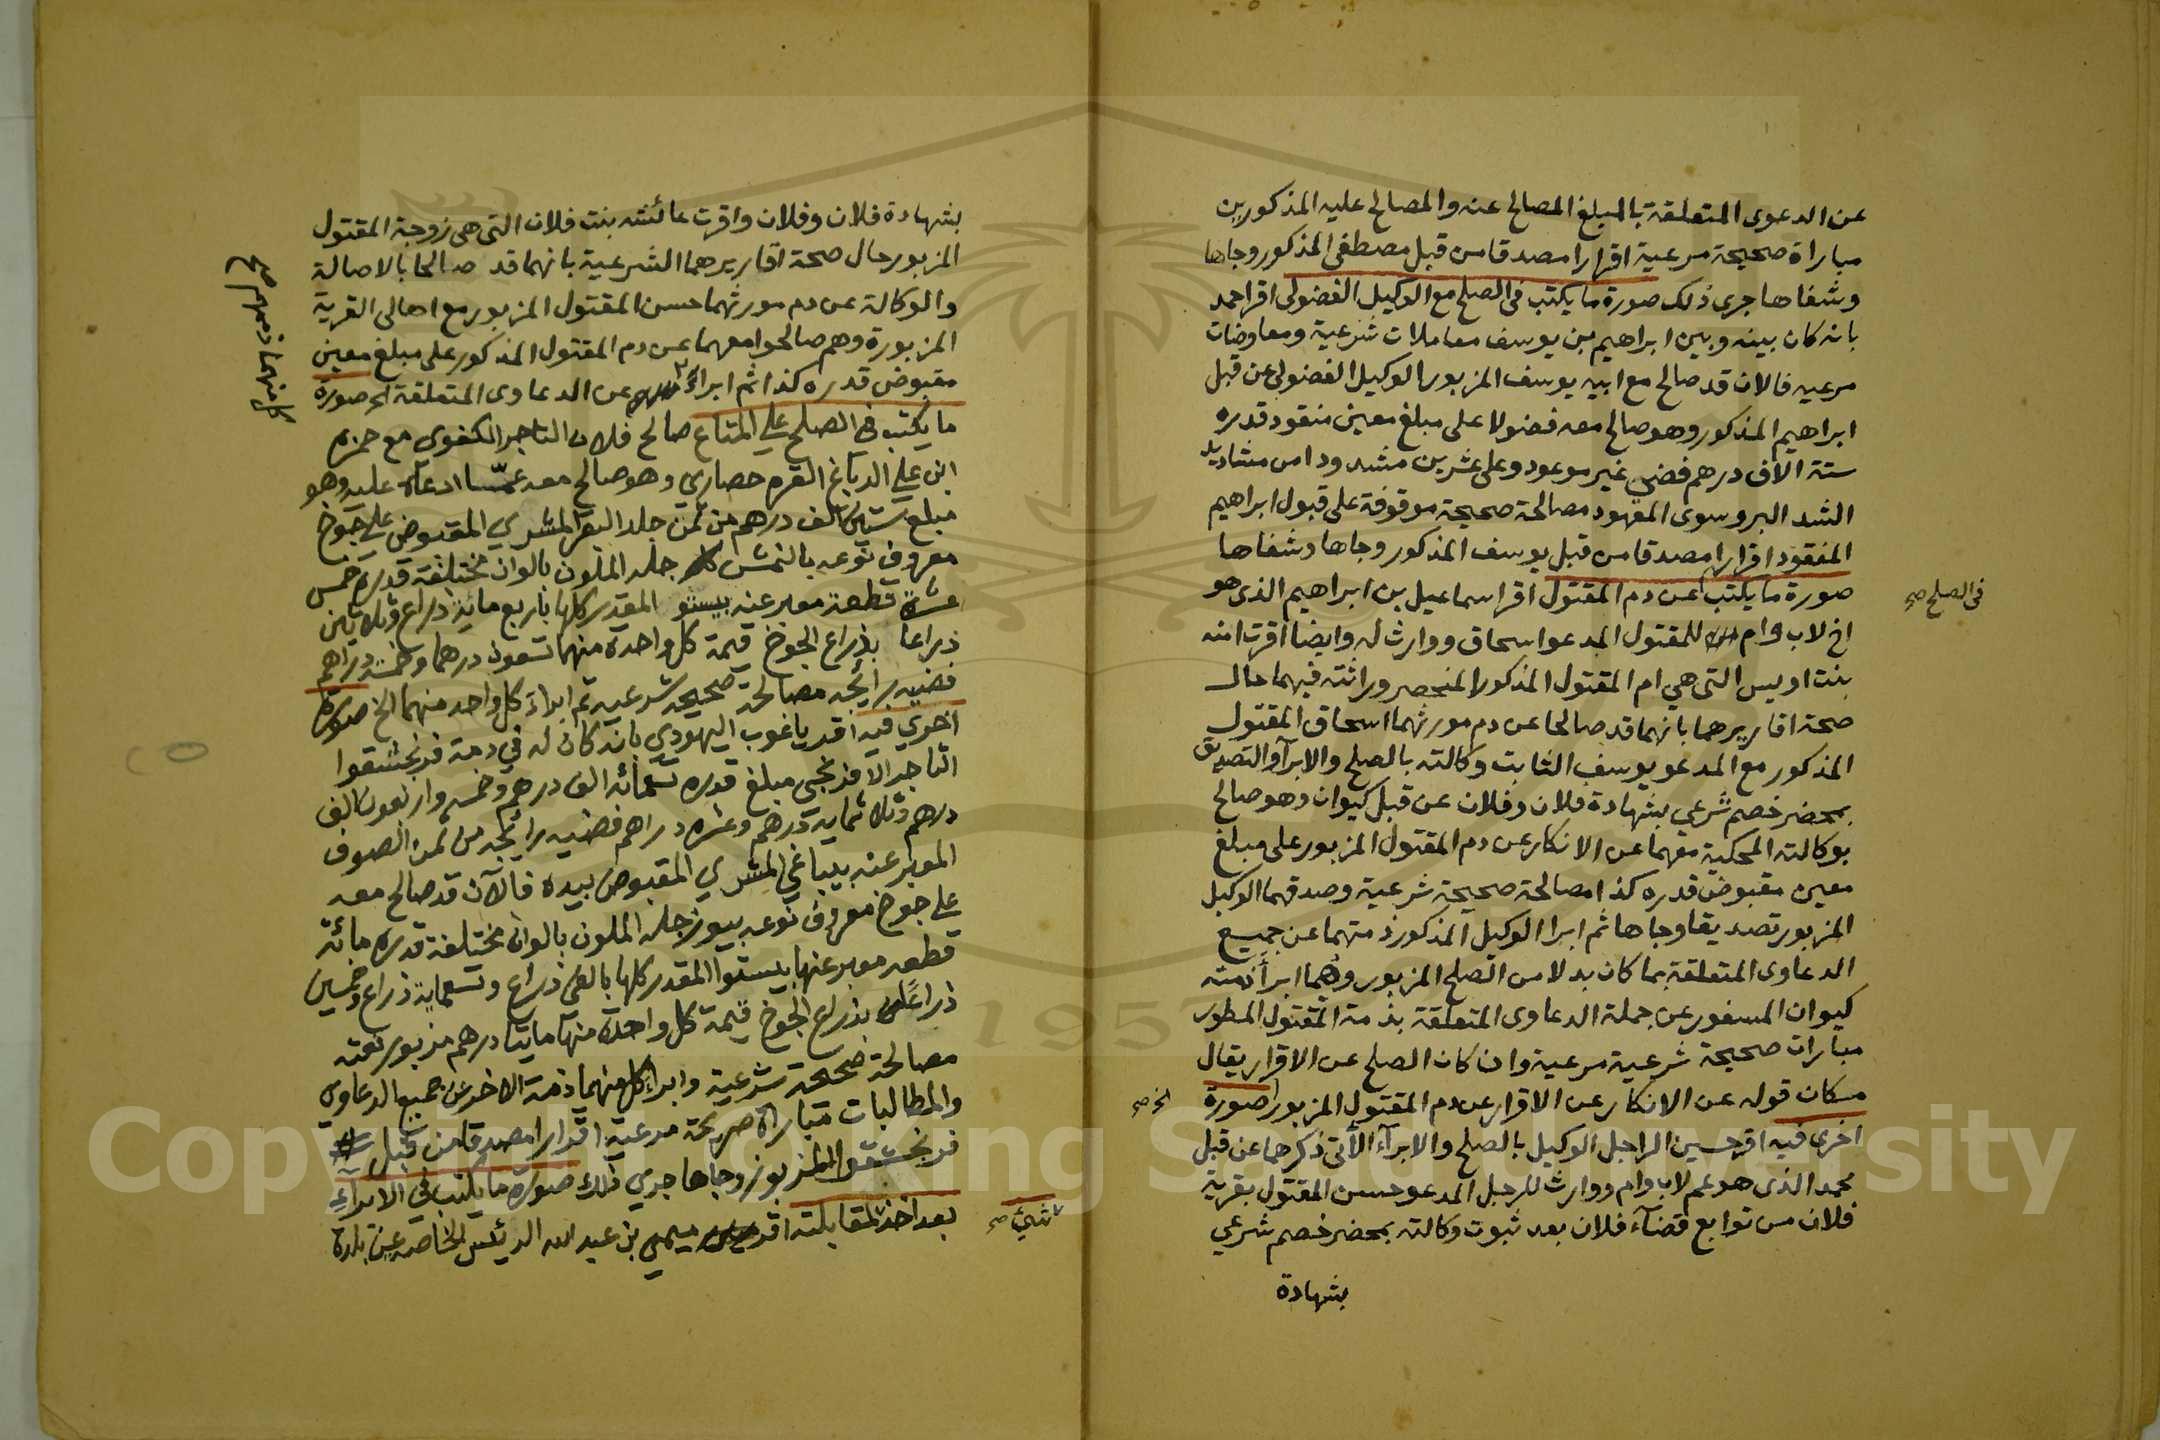 عن الدعوى المتعلقة بالمبلغ المصالح عنه والمصالح عليه المذكورين
مباراة صحيحة مرعية اقرارا مصدقا من قبل مصطفى المذكور وجاها
وشفاها جرى ذلك صورة ما يكتب فى الصلح مع الوكيل الفضولى اقر احمد
بانه كان بينه وبين ابراهيم بن يوسف معاملات شرعية ومعاوضات
مرعيه فالان قد صالح مع ابيه يوسف المزبور الوكيل الفضولى عن قبل
ابراهيم المذكور وهو صالح معه فضولا على مبلغ معين منقود قدره
ستة الاف درهم فضي غير موعود وعلى عشرين مشدودا من مشاديد
الشد البروسوى المعهود مصالحة صحيحة موقوفة على قبول ابراهيم
المفقود اقرارا مصدقا من قبل يوسف المذكور وجاها وشفاها
صورة ما يكتب عن دم المقتول اقر اسماعيل بن ابراهيم الذى هو
فى الصلح صح
اخ لاب وام للمقتول المدعو اسحاق ووارث له وايضا اقرت امنه
بنت اويس التى هي ام المقتول المذكور المنحصر وراثته فيهما حال
صحة اقاريرهما بانهما قد صالحا عن دم مورثهما اسحاق المقتول
المذكور مع المدعو يوسف الثابت وكالته بالصلح والابرآ والتصديق
بمحضر خصم شرعي بشهادة فلان وفلان عن قبل كيوان وهو صالح
بوكالته المحكية معهما عن الانكار عن دم المقتول المزبور على مبلغ
معين مقبوض قدره كذا مصالحة صحيحة شرعية وصدقهما الوكيل
المزبور تصديقا وجاها ثم ابرا الوكيل المذكور ذمتهما عن جميع
الدعاوى المتعلقة بما كان بدلا من الصلح المزبور وهما ابرأ ذمته
كيوان المسفور عن جملة الدعاوى المتعلقة بذمة المقتول المسطور
مبارات صحيحة شرعية مرعية وان كان الصلح عن الاقرار يقال
مكان قوله عن الانكار عن الاقرار عن دم المقتول المزبور صورة
اخرى فيه اقر حسين الراجل الوكيل بالصلح والابرآء الآتى ذكرهما عن قبل
محمد الذى هو عم لاب وام ووارث للرجل المدعو حسن المقتول بقرية
فلان من توابع قضآء فلان بعد ثبوت وكالته بمحضر خصم شرعي
بشهادة
بشهادة فلان وفلان واقرت عائشه بنت فلان التى هى زوجة المقتول
المزبور حال صحة اقاريرهما الشرعية بانهما قد صالحا بالاصالة
والوكالة عن دم مورثهما حسن المقتول المزبور مع اهالى القرية
المزبورة وهم صالحوا معهما عن دم المقتول المذكور على مبلغ معين
مقبوض قدره كذا ثم ابراء عن الدعاوى المتعلقة الخ صورة
كل منهما ذمتهم صح
ما يكتب فى الصلح على المتاع صالح فلان التاجر الكفوى مع حمزه
ابن على الدباغ القره حصاري وهو صالح معه عمّا ادعاه عليه وهو
مبلغ ستين الف درهم من ثمن جلد البقر المشري المقبوض على جوخ
معروف نوعه جله الملون بالوان مختلفة قدره خمس
عشرة قطعة معبر عنه بيستو المقدر كلها باربع مائة ذراع وثلاثين
ذراعا بذراع الجوخ قيمة كل واحدة منهما تسعون درهما وخمسة دراهم
فضيه برائجه مصالحة صحيحه شرعيه ثم ابراء كل واحد منهما الخ صورة
اخري فيه اقر ياغوب اليهودي بانه كان له في ذمة فرنجشقوا
التاجر الافرنجى مبلغ قدره تسعمائه الف درهم وخمسه واربعون الف
درهم وثلاثمايه درهم وعشره دراهم فضيه رائجه من ثمن الصوف
المعبر عنه بيباغي المشري المقبوض بيده فالآن قد صالح معه
على جوخ معروف نوعه جله الملون بالوان مختلفة قدره مائة
قطعه معبر عنها بيستوا المقدر كلها بالفى ذراع وتسعماية ذراع وخمسين
ذراعا بذراع الجوخ قيمة كل واحدة منها مايتا درهم مزبور نعته
مصالحة صحيحة شرعية وابراء كل منهما ذمة الاخر عن جميع الدعاوى
والمطالبات مباراة صريحة مرعية اقرارا مصدقا من قبل
فرنجشقوا المزبور وجاها جرى ذلك صورة ما يكتب في الابرآء
بعد اخذ لمقابلته اقر ميمي بن عبد الله الرئيس الخاصه عن بلدة
شيئ صح
Copyright © King Saud University
1957